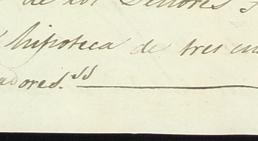 de los Señores
hipoteca de tres
adores.